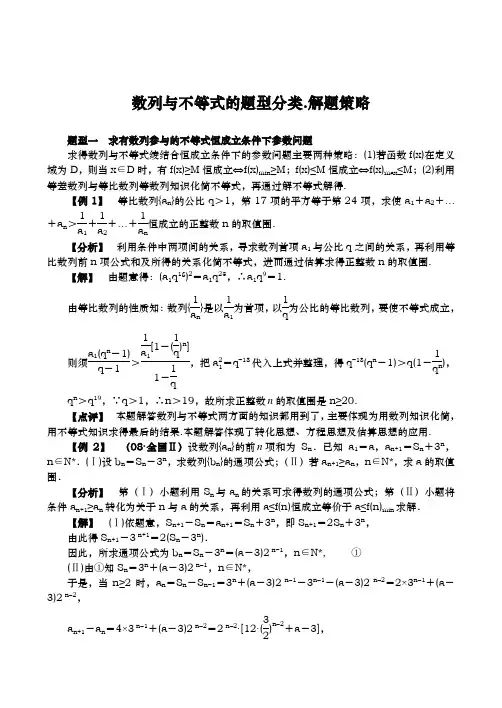 数列与不等式的题型分类.解题策略
题型一 求有数列参与的不等式恒成立条件下参数问题
求得数列与不等式绫结合恒成立条件下的参数问题主要两种策略：(1)若函数 f(x)在定义
域为 D，则当 x∈D 时，有 f(x)≥M 恒成立⇔f(x)min≥M；f(x)≤M 恒成立⇔f(x)max≤M；(2)利用
等差数列与等比数列等数列知识化简不等式，再通过解不等式解得.
【例 1】 等比数列{an}的公比 q＞1，第 17 项的平方等于第 24 项，求使 a1＋a2＋…
＋an＞1/a1＋1/a2＋…＋1/an恒成立的正整数 n 的取值圉.
【分析】 利用条件中两项间的关系，寻求数列首项 a1 与公比 q 之间的关系，再利用等
比数列前 n 项公式和及所得的关系化简不等式，进而通过估算求得正整数 n 的取值圉.
【解】 由题意得：(a1q16)2＝a1q23，∴a1q9＝1.
由等比数列的性质知：数列{1/an}是以1/a1为首项，以1/q为公比的等比数列，要使不等式成立，
则须a1(qn－1)/(q－1)＞(1/a1)[1－(1/q)n]/(1－1/q)，把 a1²＝q－18代入上式并整理，得 q－18(qn－1)＞q(1－1/qn)，
qn＞q19，∵q＞1，∴n＞19，故所求正整数n 的取值圉是 n≥20.
【点评】 本题解答数列与不等式两方面的知识都用到了，主要体现为用数列知识化简，
用不等式知识求得最后的结果.本题解答体现了转化思想、方程思想及估算思想的应用.
【例 2】 (08·全国Ⅱ)设数列{an}的前n 项和为 Sn．已知 a1＝a，an+1＝Sn＋3n，
n∈N*．(Ⅰ)设 bn＝Sn－3n，求数列{bn}的通项公式；(Ⅱ）若 an+1≥an，n∈N*，求 a 的取值
圉．
【分析】 第（Ⅰ）小题利用 Sn 与 an 的关系可求得数列的通项公式；第（Ⅱ）小题将
条件 an+1≥an 转化为关于 n 与 a 的关系，再利用 a≤f(n)恒成立等价于 a≤f(n)min 求解．
【解】 (Ⅰ)依题意，Sn+1－Sn＝an+1＝Sn＋3n，即 Sn+1＝2Sn＋3n，
由此得 Sn+1－3 n+1＝2(Sn－3n)．
因此，所求通项公式为 bn＝Sn－3n＝(a－3)2 n−1，n∈N*， ①
(Ⅱ)由①知 Sn＝3n＋(a－3)2 n−1，n∈N*，
于是，当 n≥2 时，an＝Sn－Sn−1＝3n＋(a－3)2 n−1－3n−1－(a－3)2 n−2＝2×3n−1＋(a－
3)2 n−2，
an+1－an＝4×3 n−1＋(a－3)2 n−2＝2 n−2·[12·(3/2)n−2＋a－3]，